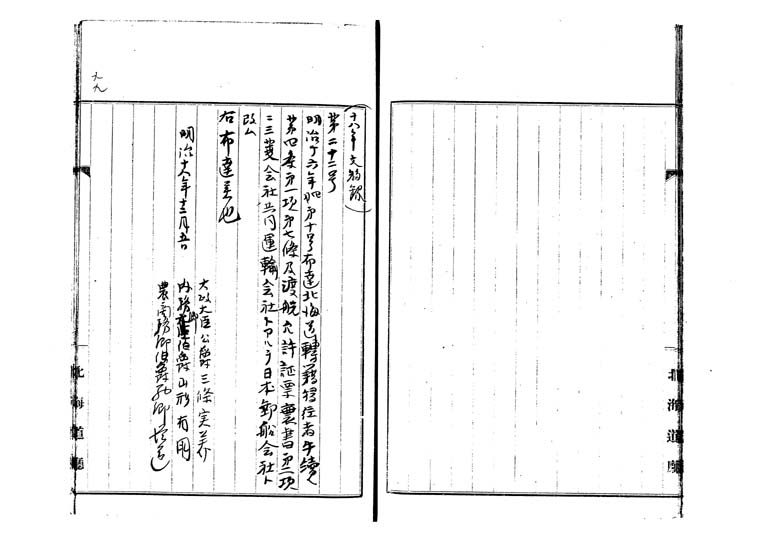 北海道廳
十八年文移録
第二十二号
明治十六年 第十号布達北海道轉籍移住者手續
第四条第一項第七條及渡航允許証票裏書第二項
ニ三菱会社共同運輸会社トアルヲ日本郵船会社ト
改ム
右布達候也
明治十八年十二月五日
太政大臣公爵三條実美
内務卿伯爵山形有朋
農商務卿伯爵
九九
北海道廳